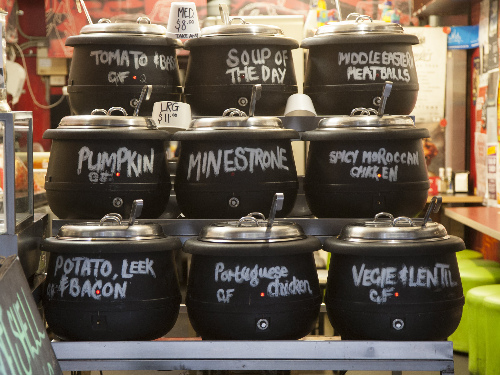 MED.
$8
TAKE AWAY
TOMATO & BAS
GF
SOUP OF
THE DAY
MIDDLE EASTERN
MEATBALLS
LRG
$11.00
PUMPKIN
GF
MINESTRONE
SPICY MOROCCAN
CHICKEN
POTATO, LEEK
& BACON
Portuguese
GF chicken
VEGIE & LENTIL
GF